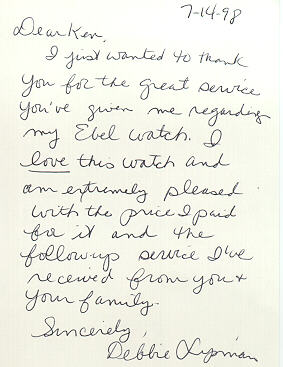 7-14-98
Dear Ken,
I just wanted to thank
you for the great service
you've given me regarding
my Ebel watch. I
love this watch and
am extremely pleased
with the price I paid
for it and the
followup service I've
received from you +
your family.
Sincerely,
Debbie Lipman